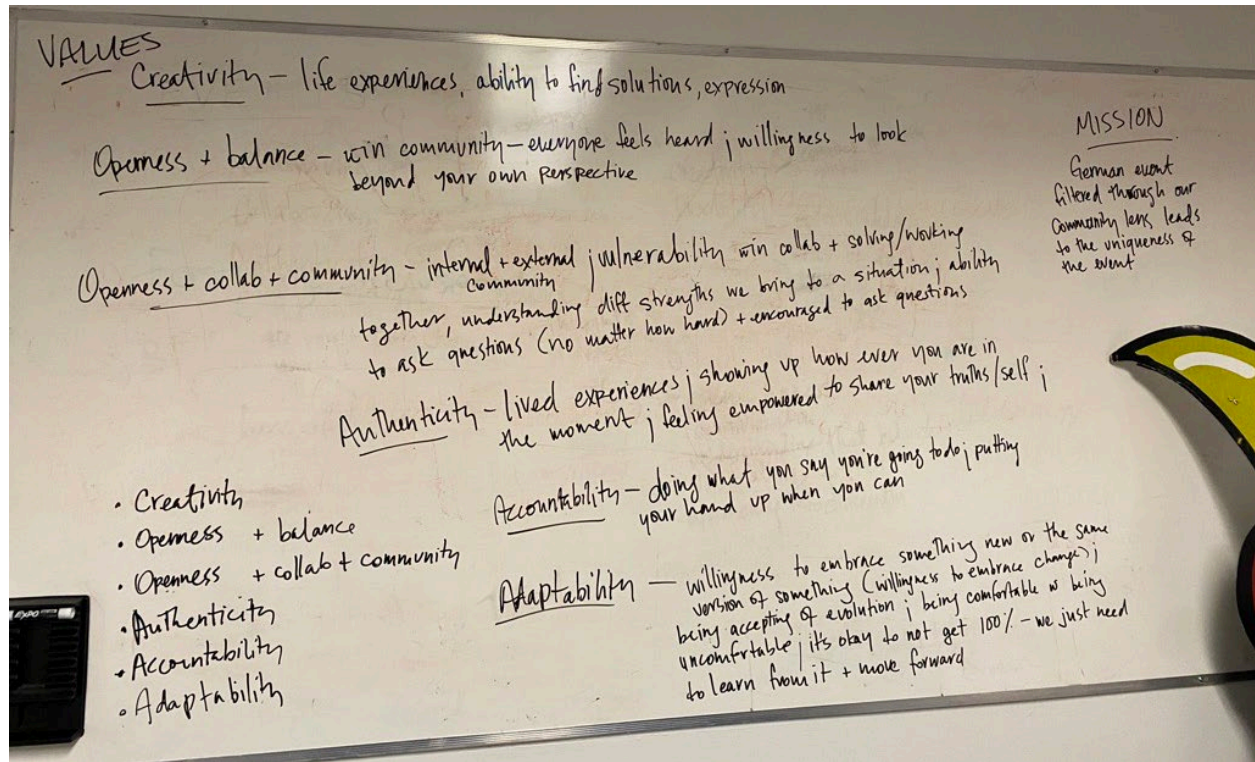 VALUES
Creativity – life experiences, ability to find solutions, expression
Openness + balance – w/in community – everyone feels heard ; willingness to look
beyond your own perspective
Openness + collab + community – internal + external ; vulnerability w/in collab + solving/working
community
together, understanding diff strengths we bring to a situation ; ability
to ask questions (no matter how hard) + encouraged to ask questions
Authenticity – lived experiences ; showing up how ever you are in
the moment ; feeling empowered to share your truths/self ;
Accountability – doing what you say you're going to do ; putting
your hand up when you can
Adaptability – willingness to embrace something new or the same
version of something (willingness to embrace change) ;
being accepting of evolution ; being comfortable w being
uncomfrtable ; it's okay to not get 100% – we just need
to learn from it + move forward
• Creativity
• Openness + balance
• Openness + collab + community
• Authenticity
• Accountability
• Adaptability
MISSION
German event
filtered through our
Community lens leads
to the uniqueness of
the event
EXPO